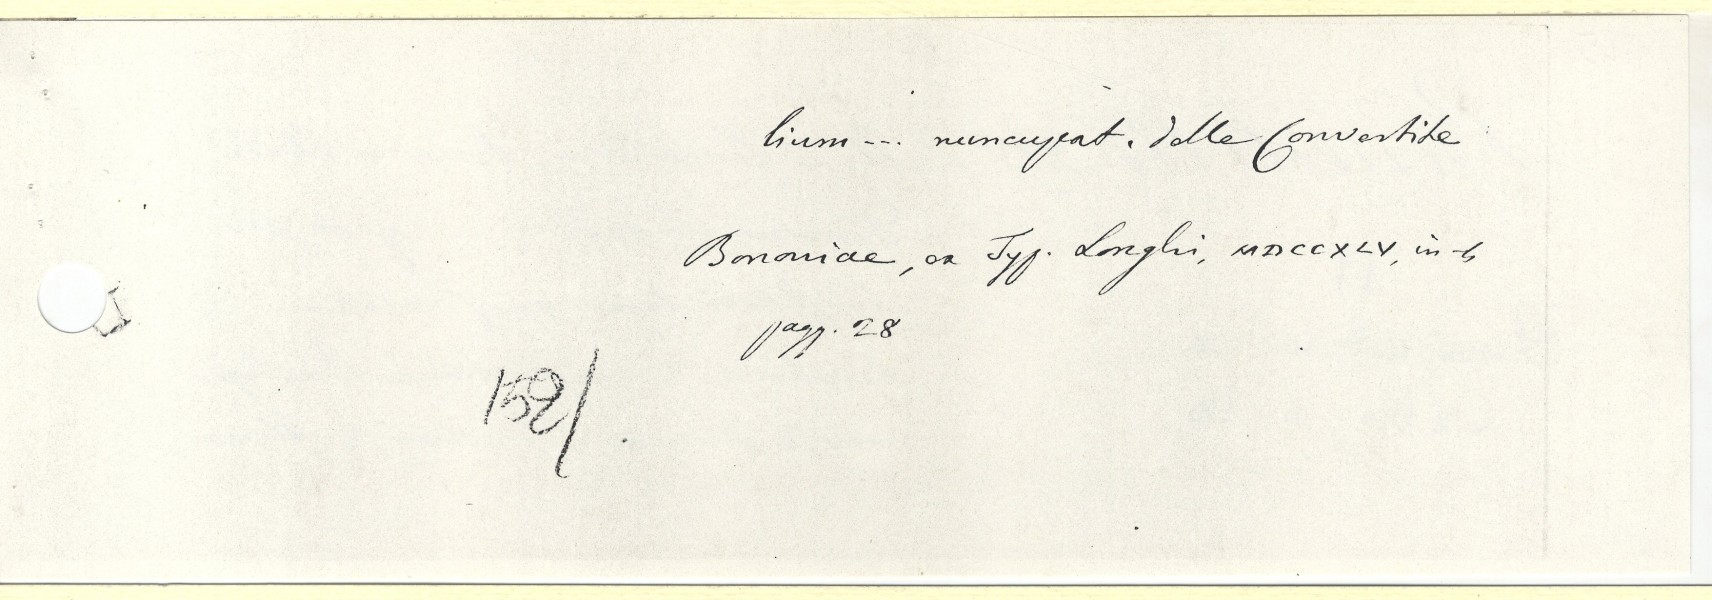 lium --- nuncupat. delle Convertite
Bononiae, ex Typ. Longhi, MDCCXLV, in-4
pagg. 28
152/.